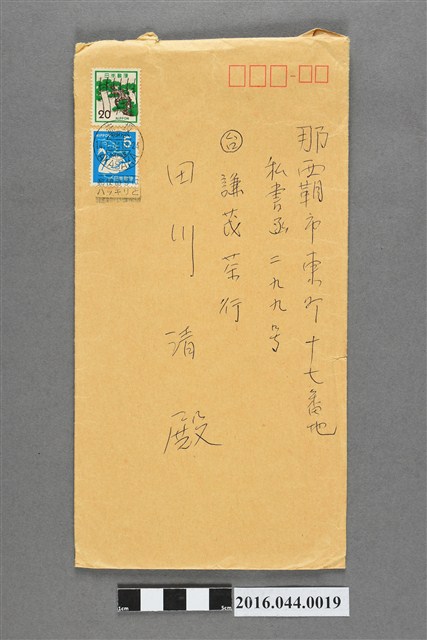 日本郵便
20
NIPPON
NIPPON
5
ハッキリと
那覇市東町十七番地
私書函二九九号
台
謙茂茶行
田川清殿
1cm
5cm
2016.044.0019